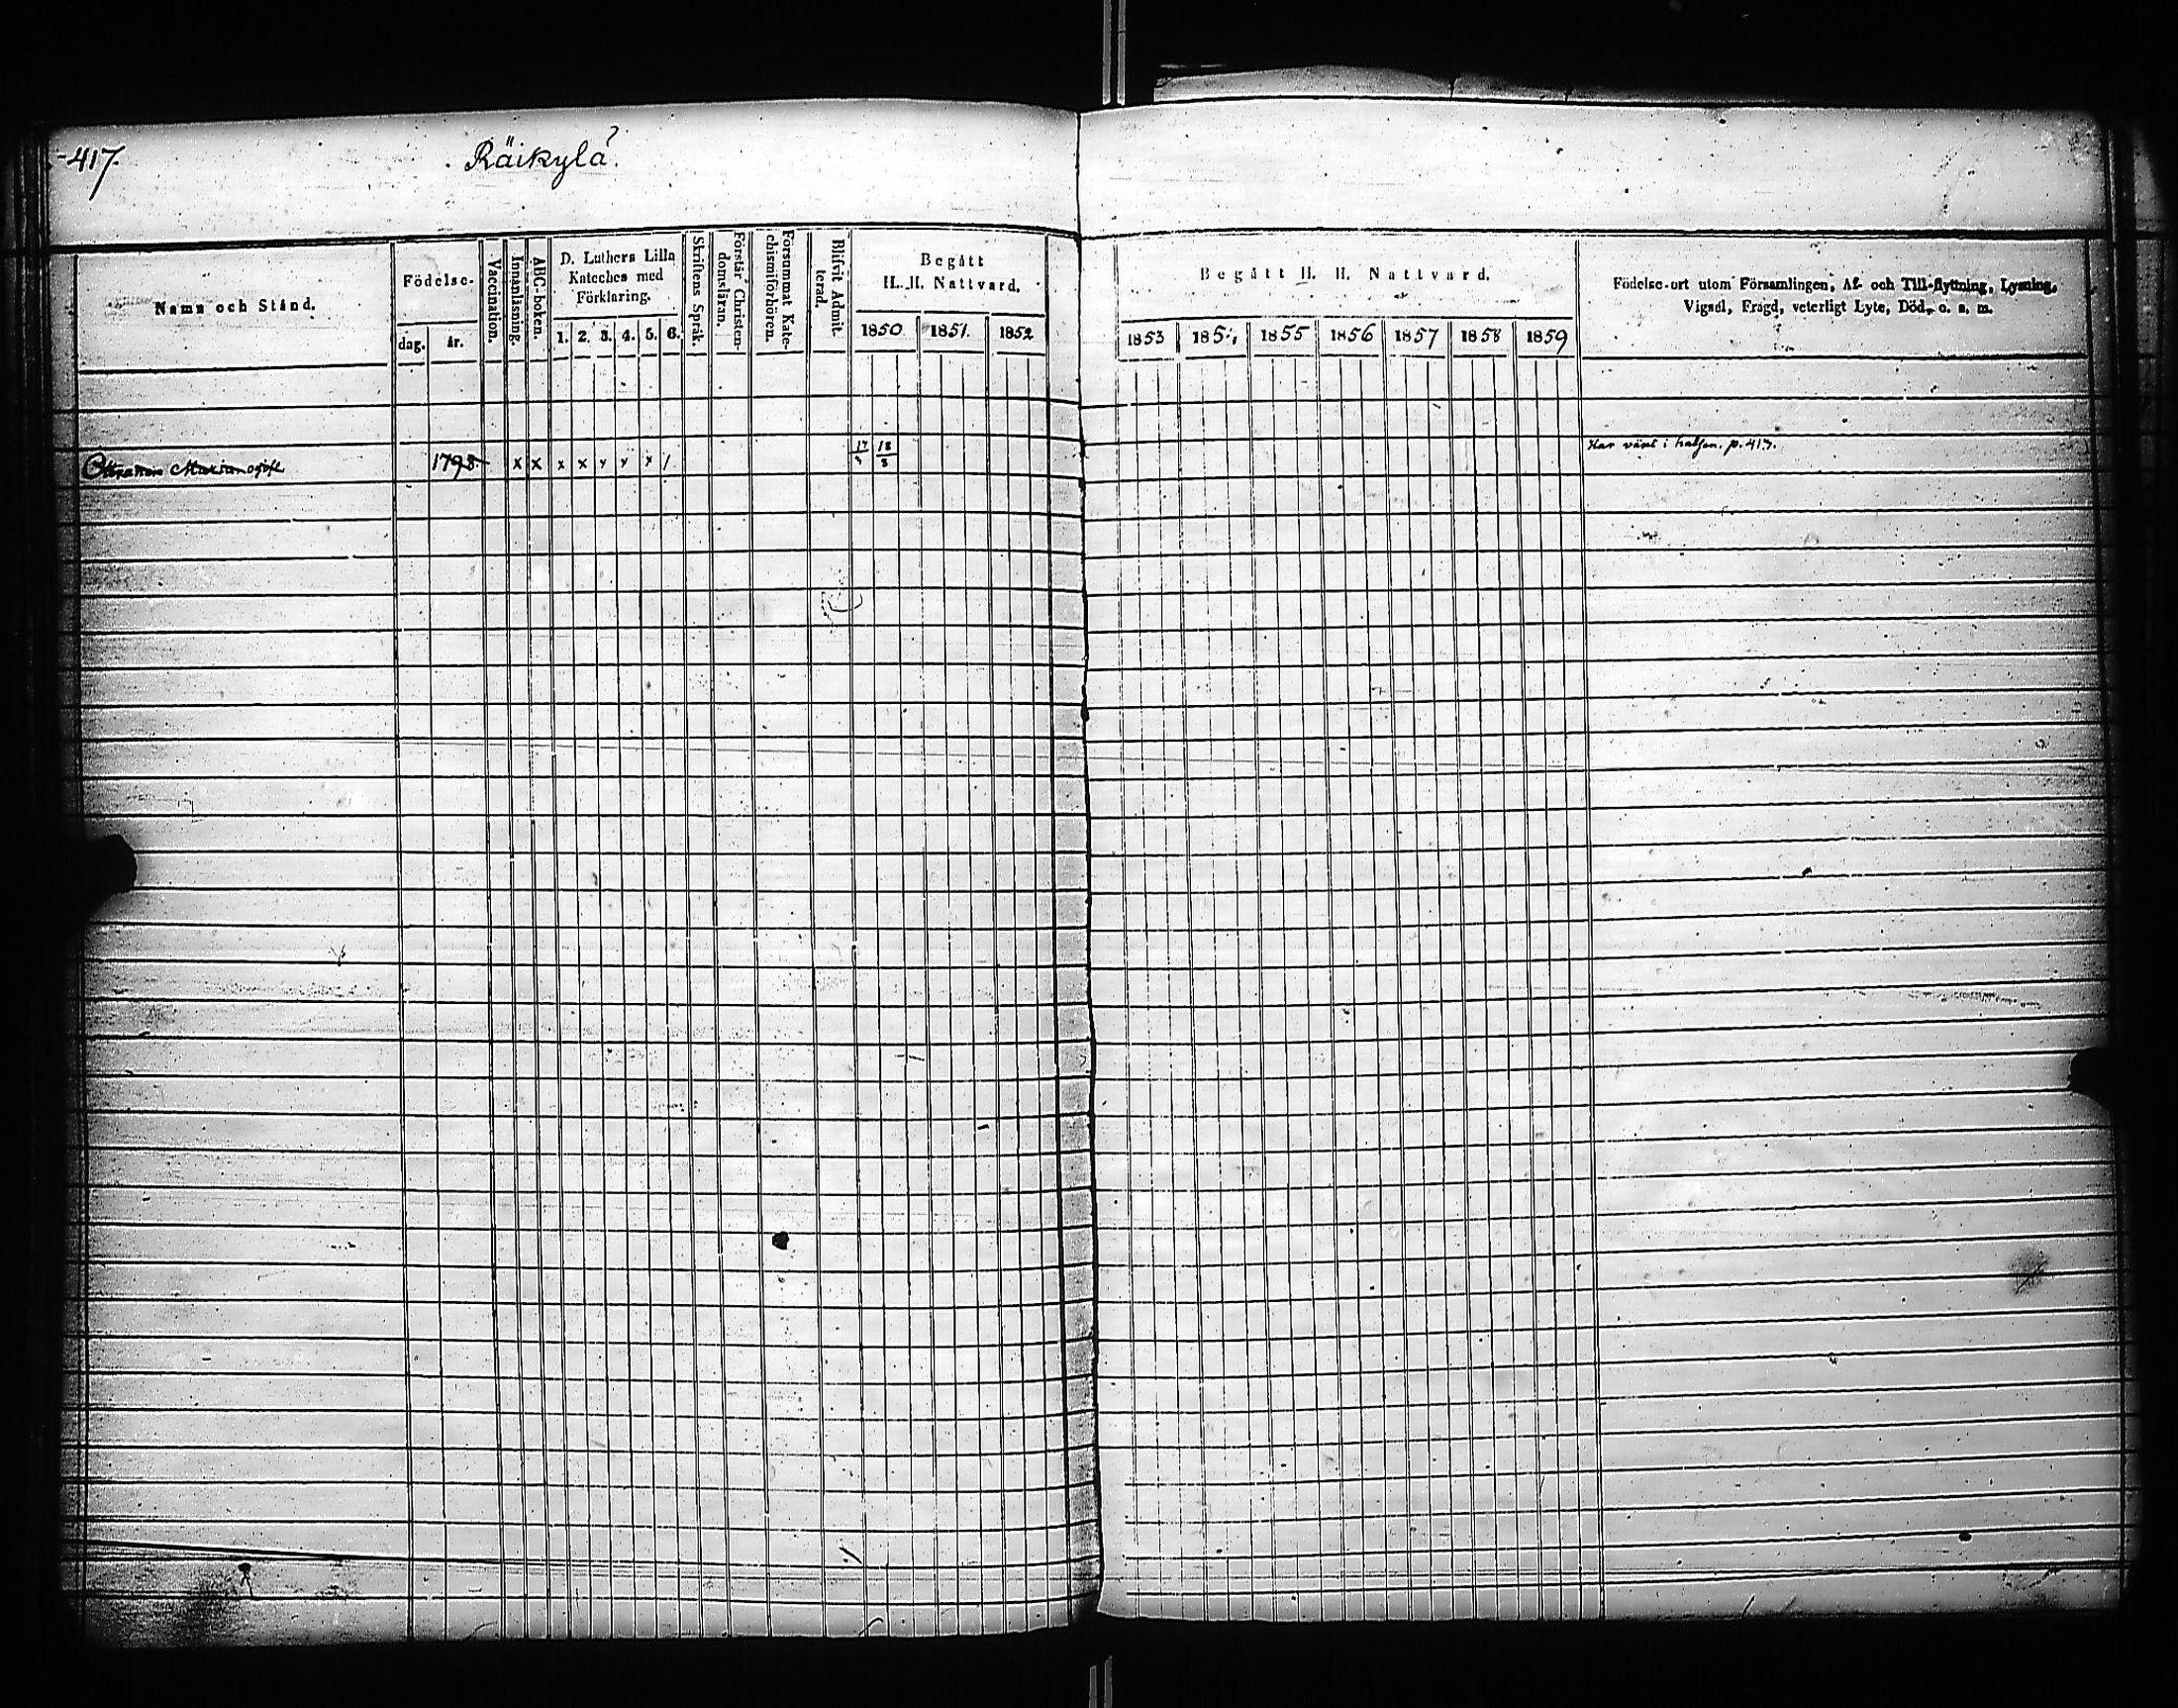 417.
Räikylä.
Namn och Stånd.
Födelse-
dag.
år.
Vaccination.
Innanläsning.
ABC-boken.
D. Luthers Lilla
Kateches med
Förklaring.
1. 2. 3. 4. 5. 6.
Skriftens Språk.
Förstår Christen-
domsläran.
Försummat Kate-
chismiförhören.
Blifvit Admit-
terad.
Begått
H. H. Nattvard.
1850 1851. 1852
Begått H. H. Nattvard.
1853 1854 1855 1856 1857 1858 1859
Födelse-ort utom Församlingen, Af- och Till-flyttning, Lysning,
Vigsel, Frägd, veterligt Lyte, Död, o. s. m.
1798 x x x x x x x /
Har växt i halsen. p. 417.